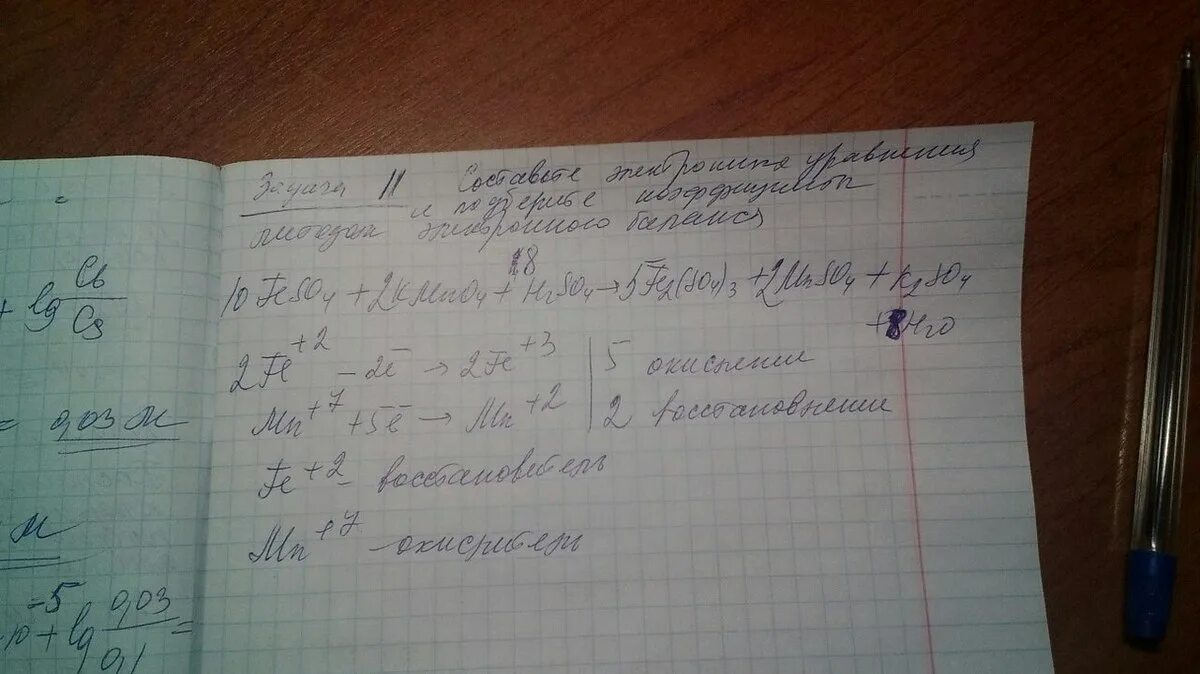 + lg Cв/Cэ
= 0,03 М
М
=5
10 + lg 0,03/0,1 =
Задача 11 Составьте электронные уравнения
и подберите коэффициенты
методом электронного баланса
18
10 FeSO4 + 2KMnO4 + H2SO4 → 5Fe2(SO4)3 + 2MnSO4 + K2SO4
+ 8H2O
2Fe+2 - 2ē → 2Fe+3 | 5 окисление
Mn+7 + 5ē → Mn+2 | 2 восстановление
Fe+2 - восстановитель
Mn+7 - окислитель